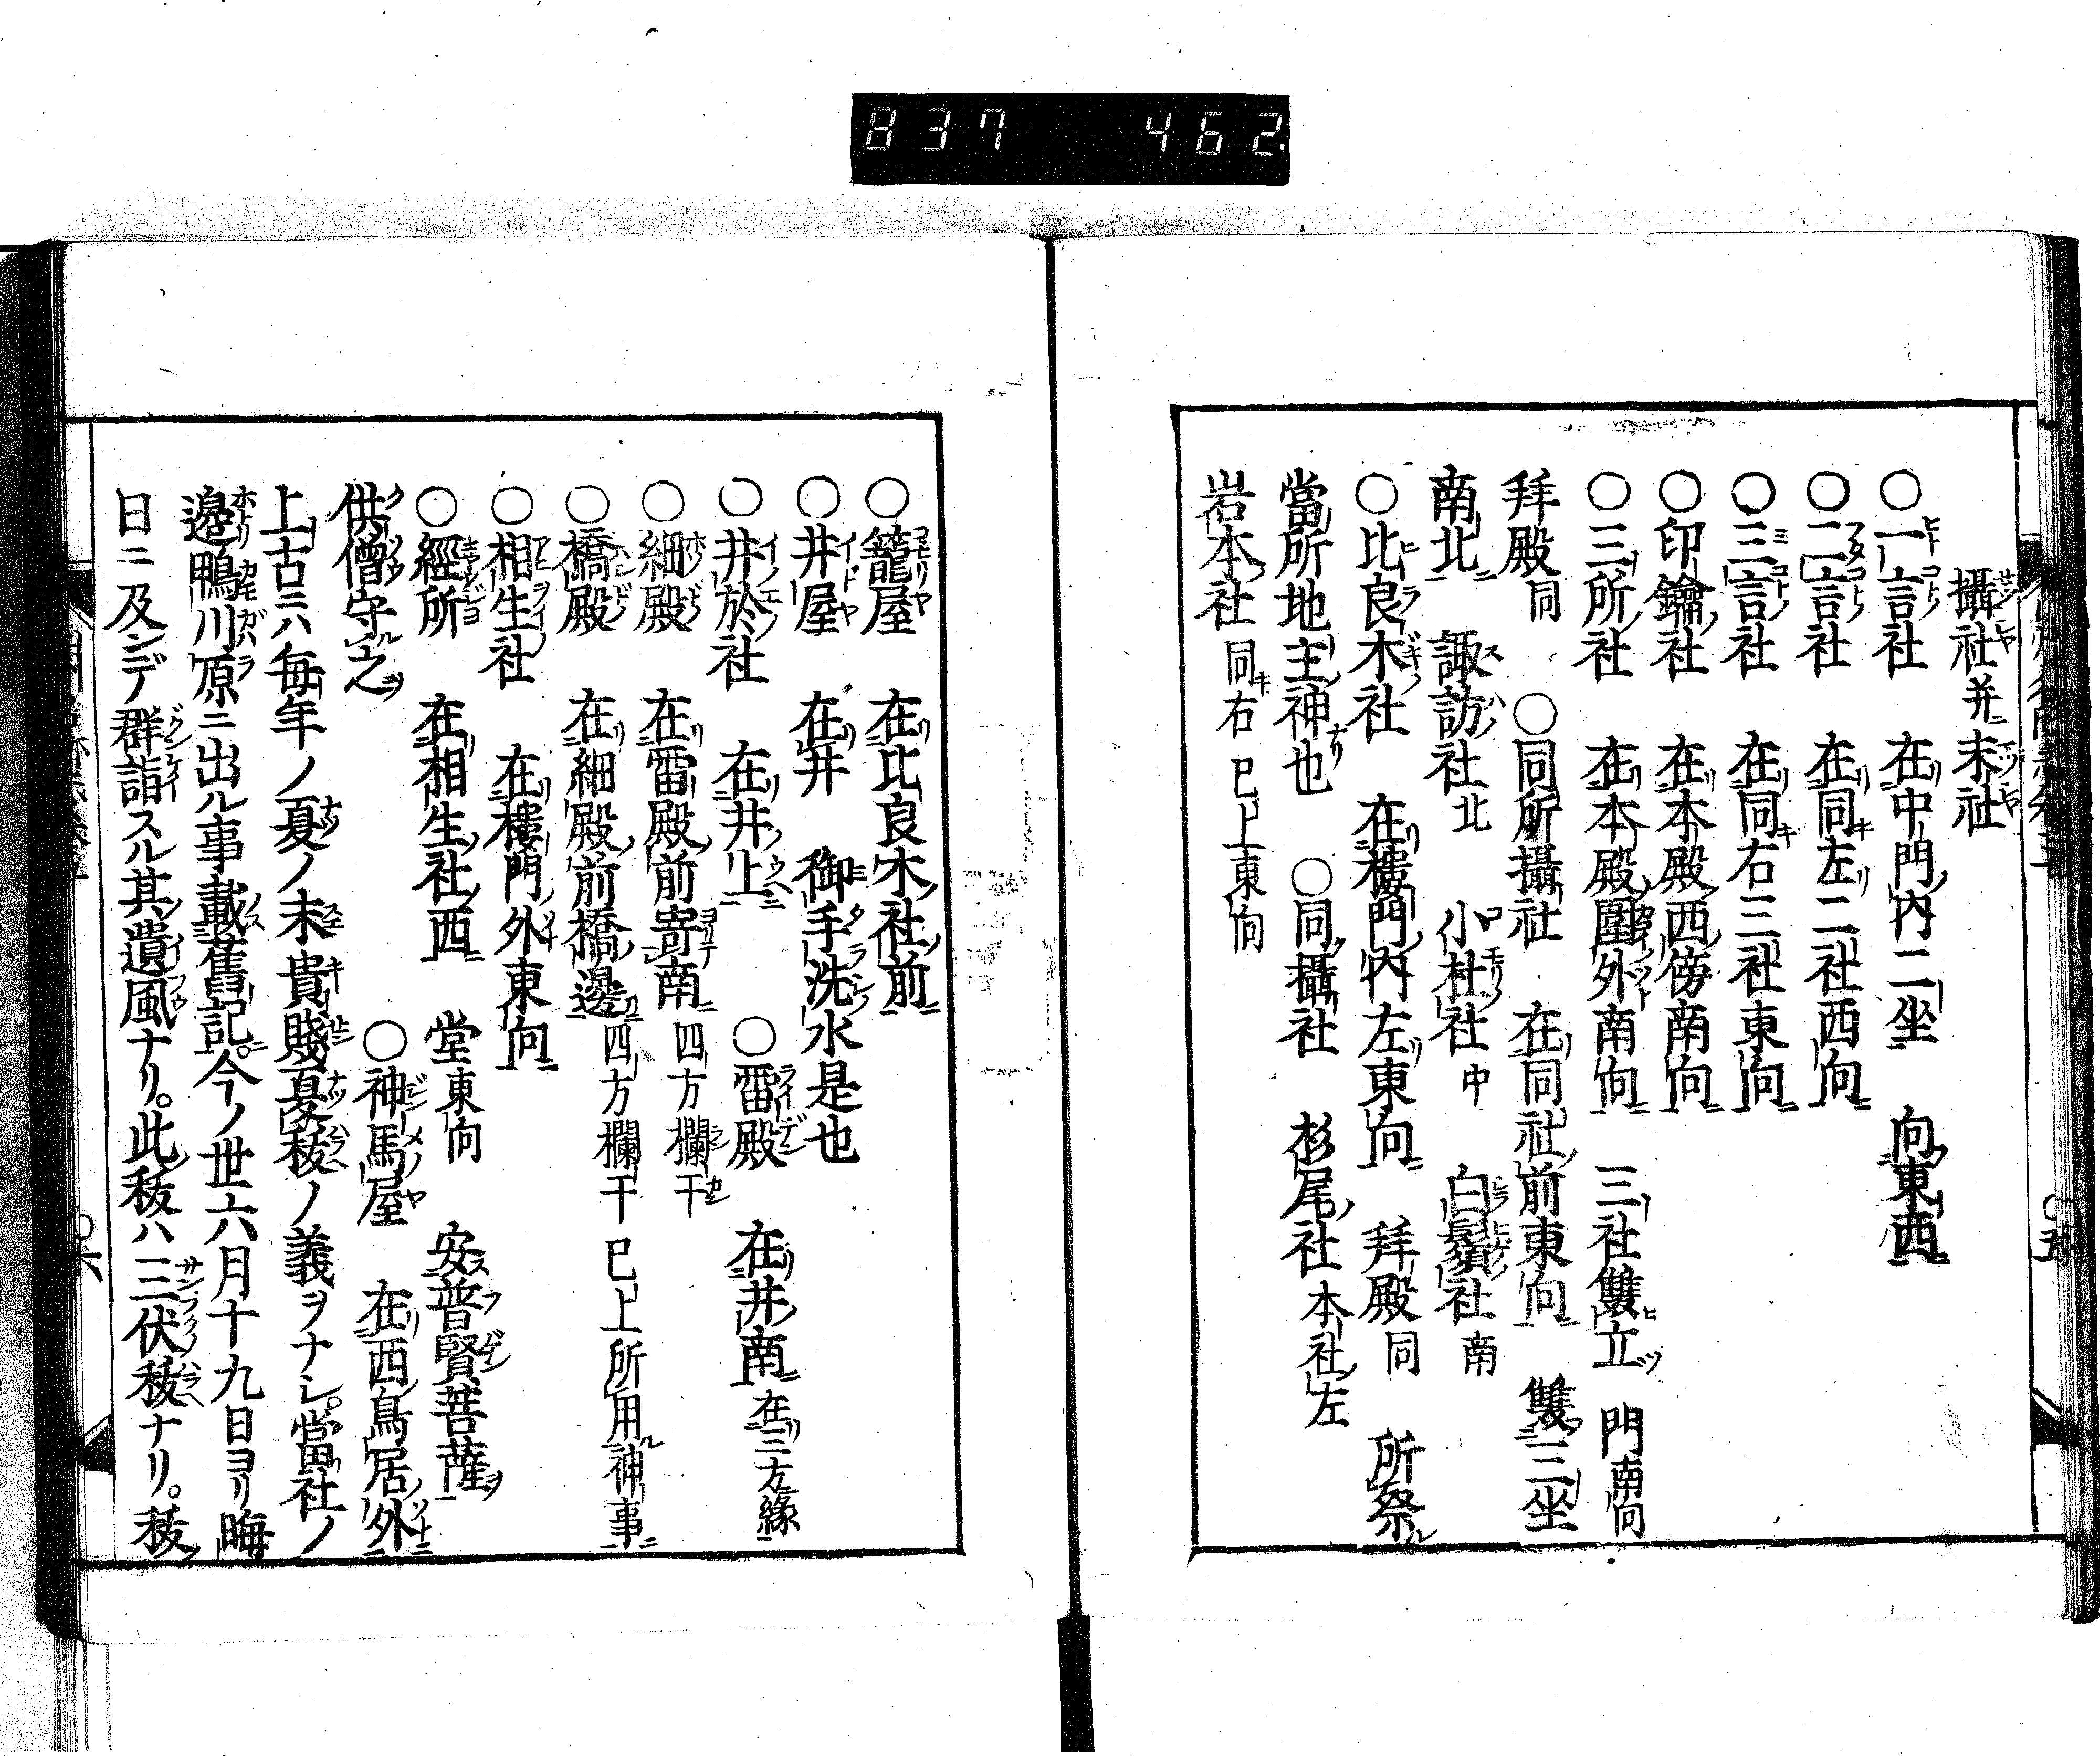 837 462
攝社并末社
○一言社 在中門内二坐 向東西
○二言社 在同左二社西向
○三言社 在同右三社東向
○印鑰社 在本殿西傍南向
○三所社 在本殿圍外南向 三社雙立 門南向
拜殿同 ○同所攝社 在同社前東向 雙三坐
南北 諏訪社北 小杜社中 白鬚社南
○比良木社 在樓門内左東向 拜殿同 所祭
當所地主神也 ○同攝社 杉尾社本社左
岩本社同右 已上東向
○籠屋 在比良木社前
○井屋 在井 御手洗水是也
○井於社 在井上 ○雷殿 在井南在三方緣
○細殿 在雷殿前寄南 四方欄干
○橋殿 在細殿前橋邊 四方欄干 已上所用神事
○相生社 在樓門外東向
○經所 在相生社西 堂東向 安普賢菩薩
供僧守之 ○神馬屋 在西鳥居外
上古ニハ毎年ノ夏ノ末貴賤夏秡ノ義ヲナシ。當社ノ
邊鴨川原ニ出ル事載舊記。今ノ世六月十九日ヨリ晦
日ニ及ンデ群詣スル其遺風ナリ。此秡ハ三伏秡ナリ。秡